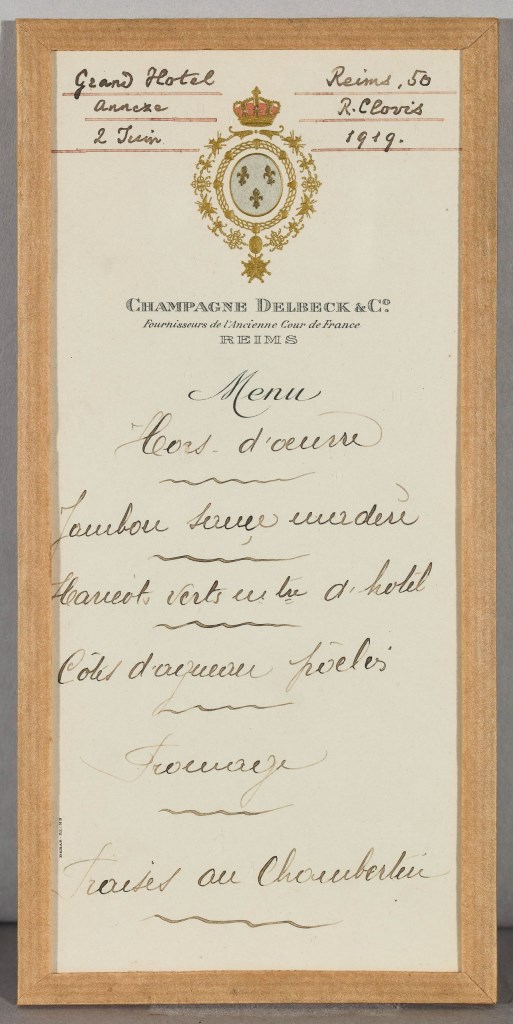 Grand Hotel
Annexe
2 Juin
Reims, 50
R. Clovis
1919.
CHAMPAGNE DELBECK & Cº.
Fournisseurs de l'Ancienne Cour de France
REIMS
Menu
Hors-d'œuvre
Jambon sauçe madère
Haricots verts m tre d'hotel
Côtes d'agneau poëlés
Fromage
Fraises au Chambertin